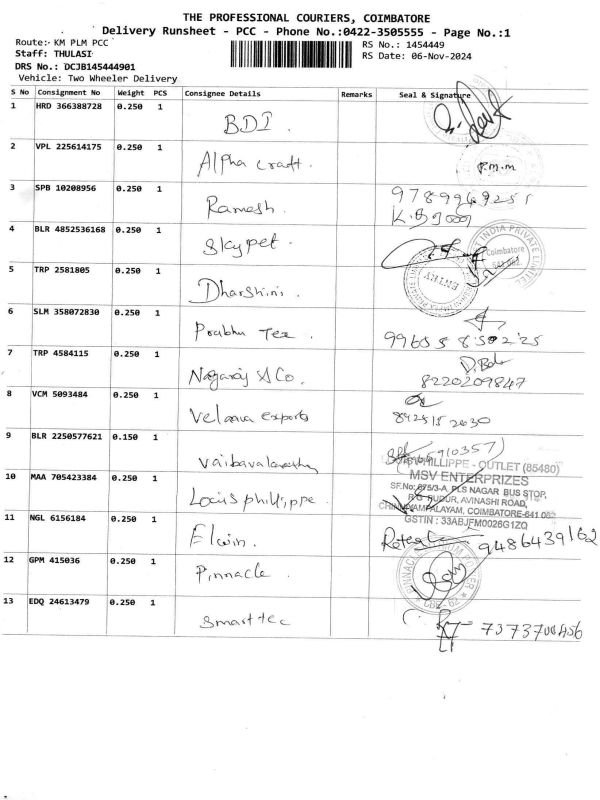 THE PROFESSIONAL COURIERS, COIMBATORE
Delivery Runsheet - PCC - Phone No.:0422-3505555 - Page No.:1
Route:- KM PLM PCC
RS No.: 1454449
Staff: THULASI
RS Date: 06-Nov-2024
DRS No.: DCJB145444901
Vehicle: Two Wheeler Delivery
S No Consignment No Weight PCS Consignee Details Remarks Seal & Signature
1 HRD 366388728 0.250 1 BDI.
2 VPL 225614175 0.250 1 Alpha craft. P.M.M
3 SPB 10208956 0.250 1 Ramesh. 9789949251
4 BLR 4852536168 0.250 1 Skypet. INDIA PRIVATE LIMITED Coimbatore
ENTRY
5 TRP 2581805 0.250 1 Dharshini.
6 SLM 358072830 0.250 1 Prabhu Tex.
7 TRP 4584115 0.250 1 Nagaraj & Co. 8220209847
8 VCM 5093484 0.250 1 Velania exports
9 BLR 2250577621 0.150 1
PHILLIPPE - OUTLET (85480)
MSV ENTERPRIZES
10 MAA 705423384 0.250 1 Louis phillippe.
SF.No: 675/3-A, PLS NAGAR BUS STOP,
PUDUR, AVINASHI ROAD,
CHINNIYAMPALAYAM, COIMBATORE-641 062
GSTIN : 33ABJFM0026G1ZQ
11 NGL 6156184 0.250 1 Elwin. 9486439162
12 GPM 415036 0.250 1 Pinnacle. CBE - 62
13 EDQ 24613479 0.250 1 Smart tec 7373700456